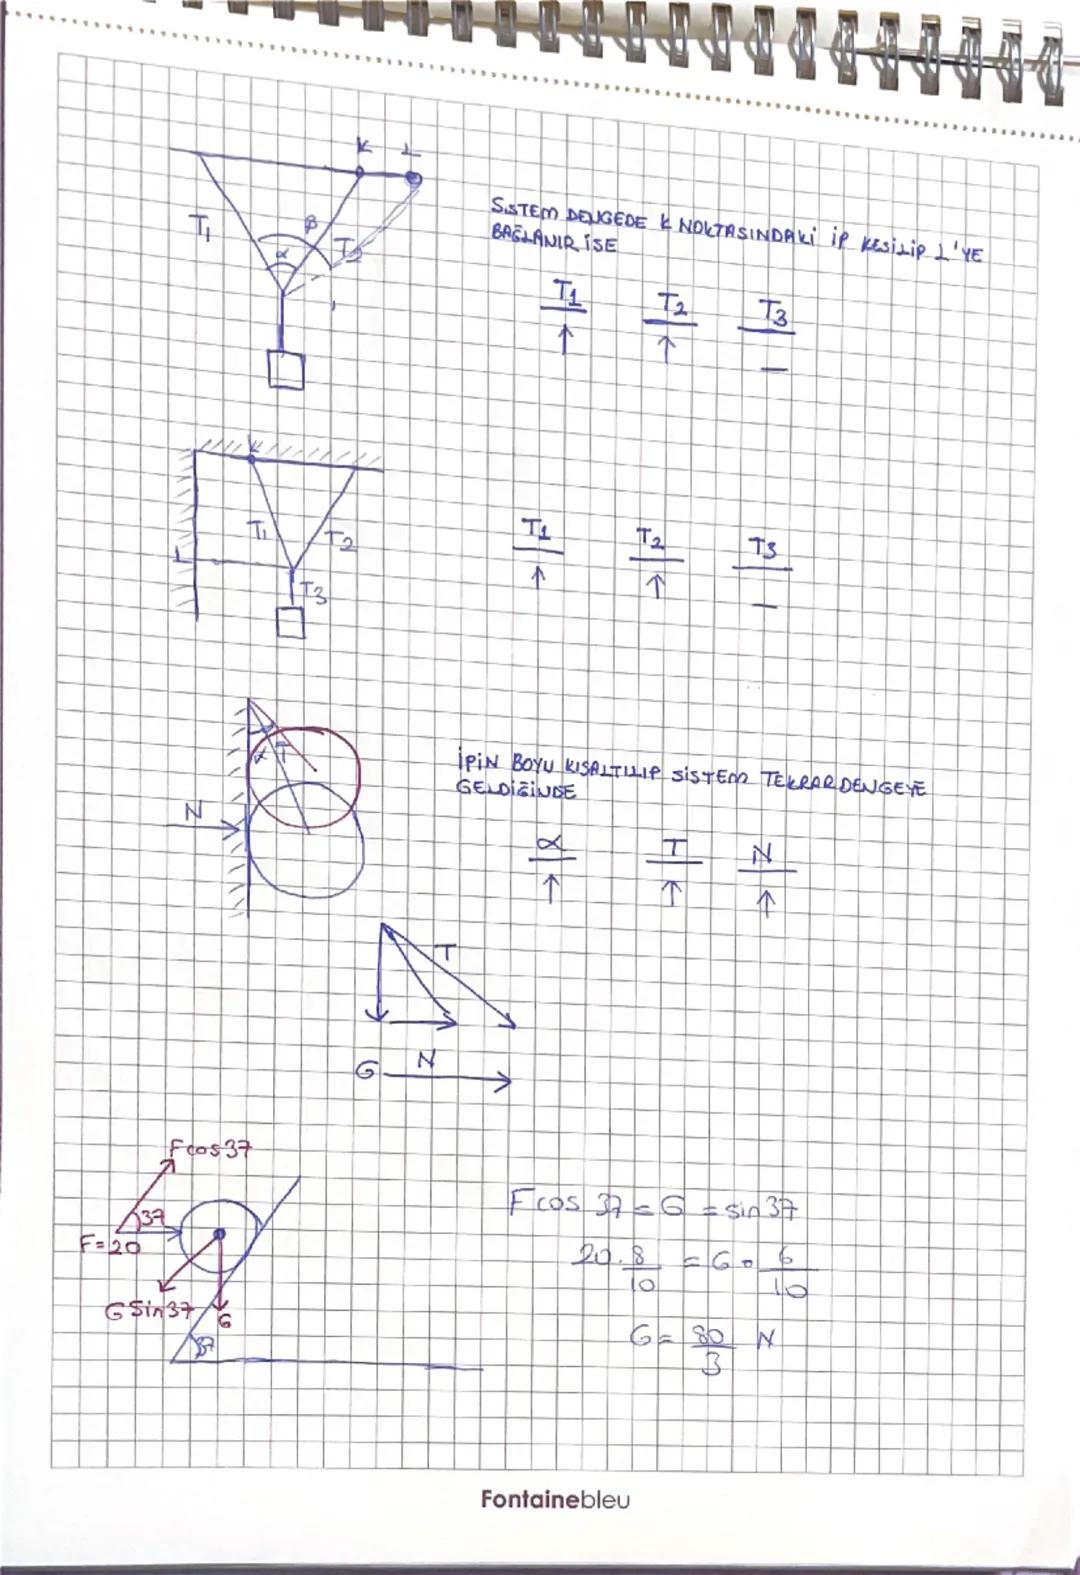 K L
T1
β
α
T2
SİSTEM DENGEDE K NOKTASINDAKİ İP KESİLİP L'YE
BAĞLANIR İSE
T1 T2 T3
↑ ↑ —
K
T1 T2
L
T3
T1 T2 T3
↑ ↑ —
α T
N
İPİN BOYU KISALTILIP SİSTEM TEKRAR DENGEYE
GELDİĞİNDE
α T N
↑ ↑ ↑
T
G N
Fcos37
37
F=20
GSin37
G
37
Fcos 37 = G = sin37
20. 8/10 = G . 6/10
G = 80/3 N
Fontainebleu